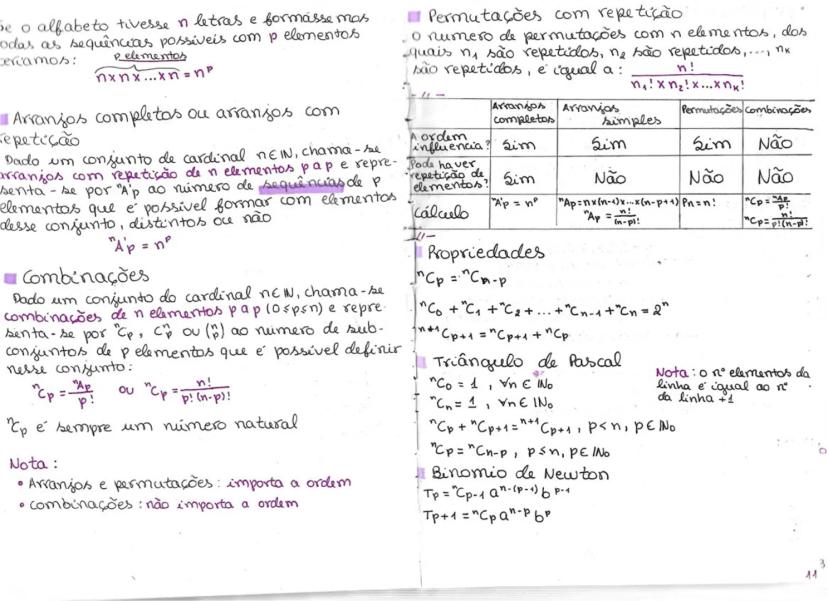 se o alfabeto tivesse n letras e formássemos
odas as sequências possíveis com p elementos
teríamos:
p elementos
n×n×...×n = nᵖ
Arranjos completos ou arranjos com
repetição
Dado um conjunto de cardinal n∈IN, chama-se
arranjos com repetição de n elementos p a p e repre-
senta-se por ⁿA'p ao número de sequências de p
elementos que é possível formar com elementos
desse conjunto, distintos ou não
ⁿA'p = nᵖ
Combinações
Dado um conjunto do cardinal n∈IN, chama-se
combinações de n elementos p a p (0≤p≤n) e repre-
senta-se por ⁿCp, Cⁿp ou (ⁿp) ao número de sub-
conjuntos de p elementos que é possível definir
nesse conjunto:
ⁿCp = ⁿAp/p! ou ⁿCp = n!/p!(n-p)!
ⁿCp é sempre um número natural
Nota:
• Arranjos e permutações: importa a ordem
• combinações: não importa a ordem
Permutações com repetição
o número de permutações com n elementos, dos
quais n₁ são repetidos, n₂ são repetidos, ..., nₖ
são repetidos, é igual a: n!/n₁!×n₂!×...×nₖ!
Arranjos completos Arranjos simples Permutações Combinações
A ordem influencia? Sim Sim Sim Não
Pode haver repetição de elementos? Sim Não Não Não
Cálculo ⁿA'p = nᵖ ⁿAp = n×(n-1)×...×(n-p+1) Pn = n! ⁿCp = ⁿAp/p!
ⁿAp = n!/(n-p)! ⁿCp = n!/p!(n-p)!
Propriedades
ⁿCp = ⁿCn-p
ⁿC₀ + ⁿC₁ + ⁿC₂ + ... + ⁿCn-1 + ⁿCn = 2ⁿ
ⁿ⁺¹Cp+1 = ⁿCp+1 + ⁿCp
Triângulo de Pascal
ⁿC₀ = 1, ∀n ∈ IN₀
ⁿCn = 1, ∀n ∈ IN₀
ⁿCp + ⁿCp+1 = ⁿ⁺¹Cp+1, p<n, p∈IN₀
ⁿCp = ⁿCn-p, p≤n, p∈IN₀
Nota: o nº elementos da
linha é igual ao nº
da linha +1
Binomio de Newton
Tp = ⁿCp-1 aⁿ⁻⁽ᵖ⁻¹⁾ bᵖ⁻¹
Tp+1 = ⁿCp aⁿ⁻ᵖ bᵖ
3
11